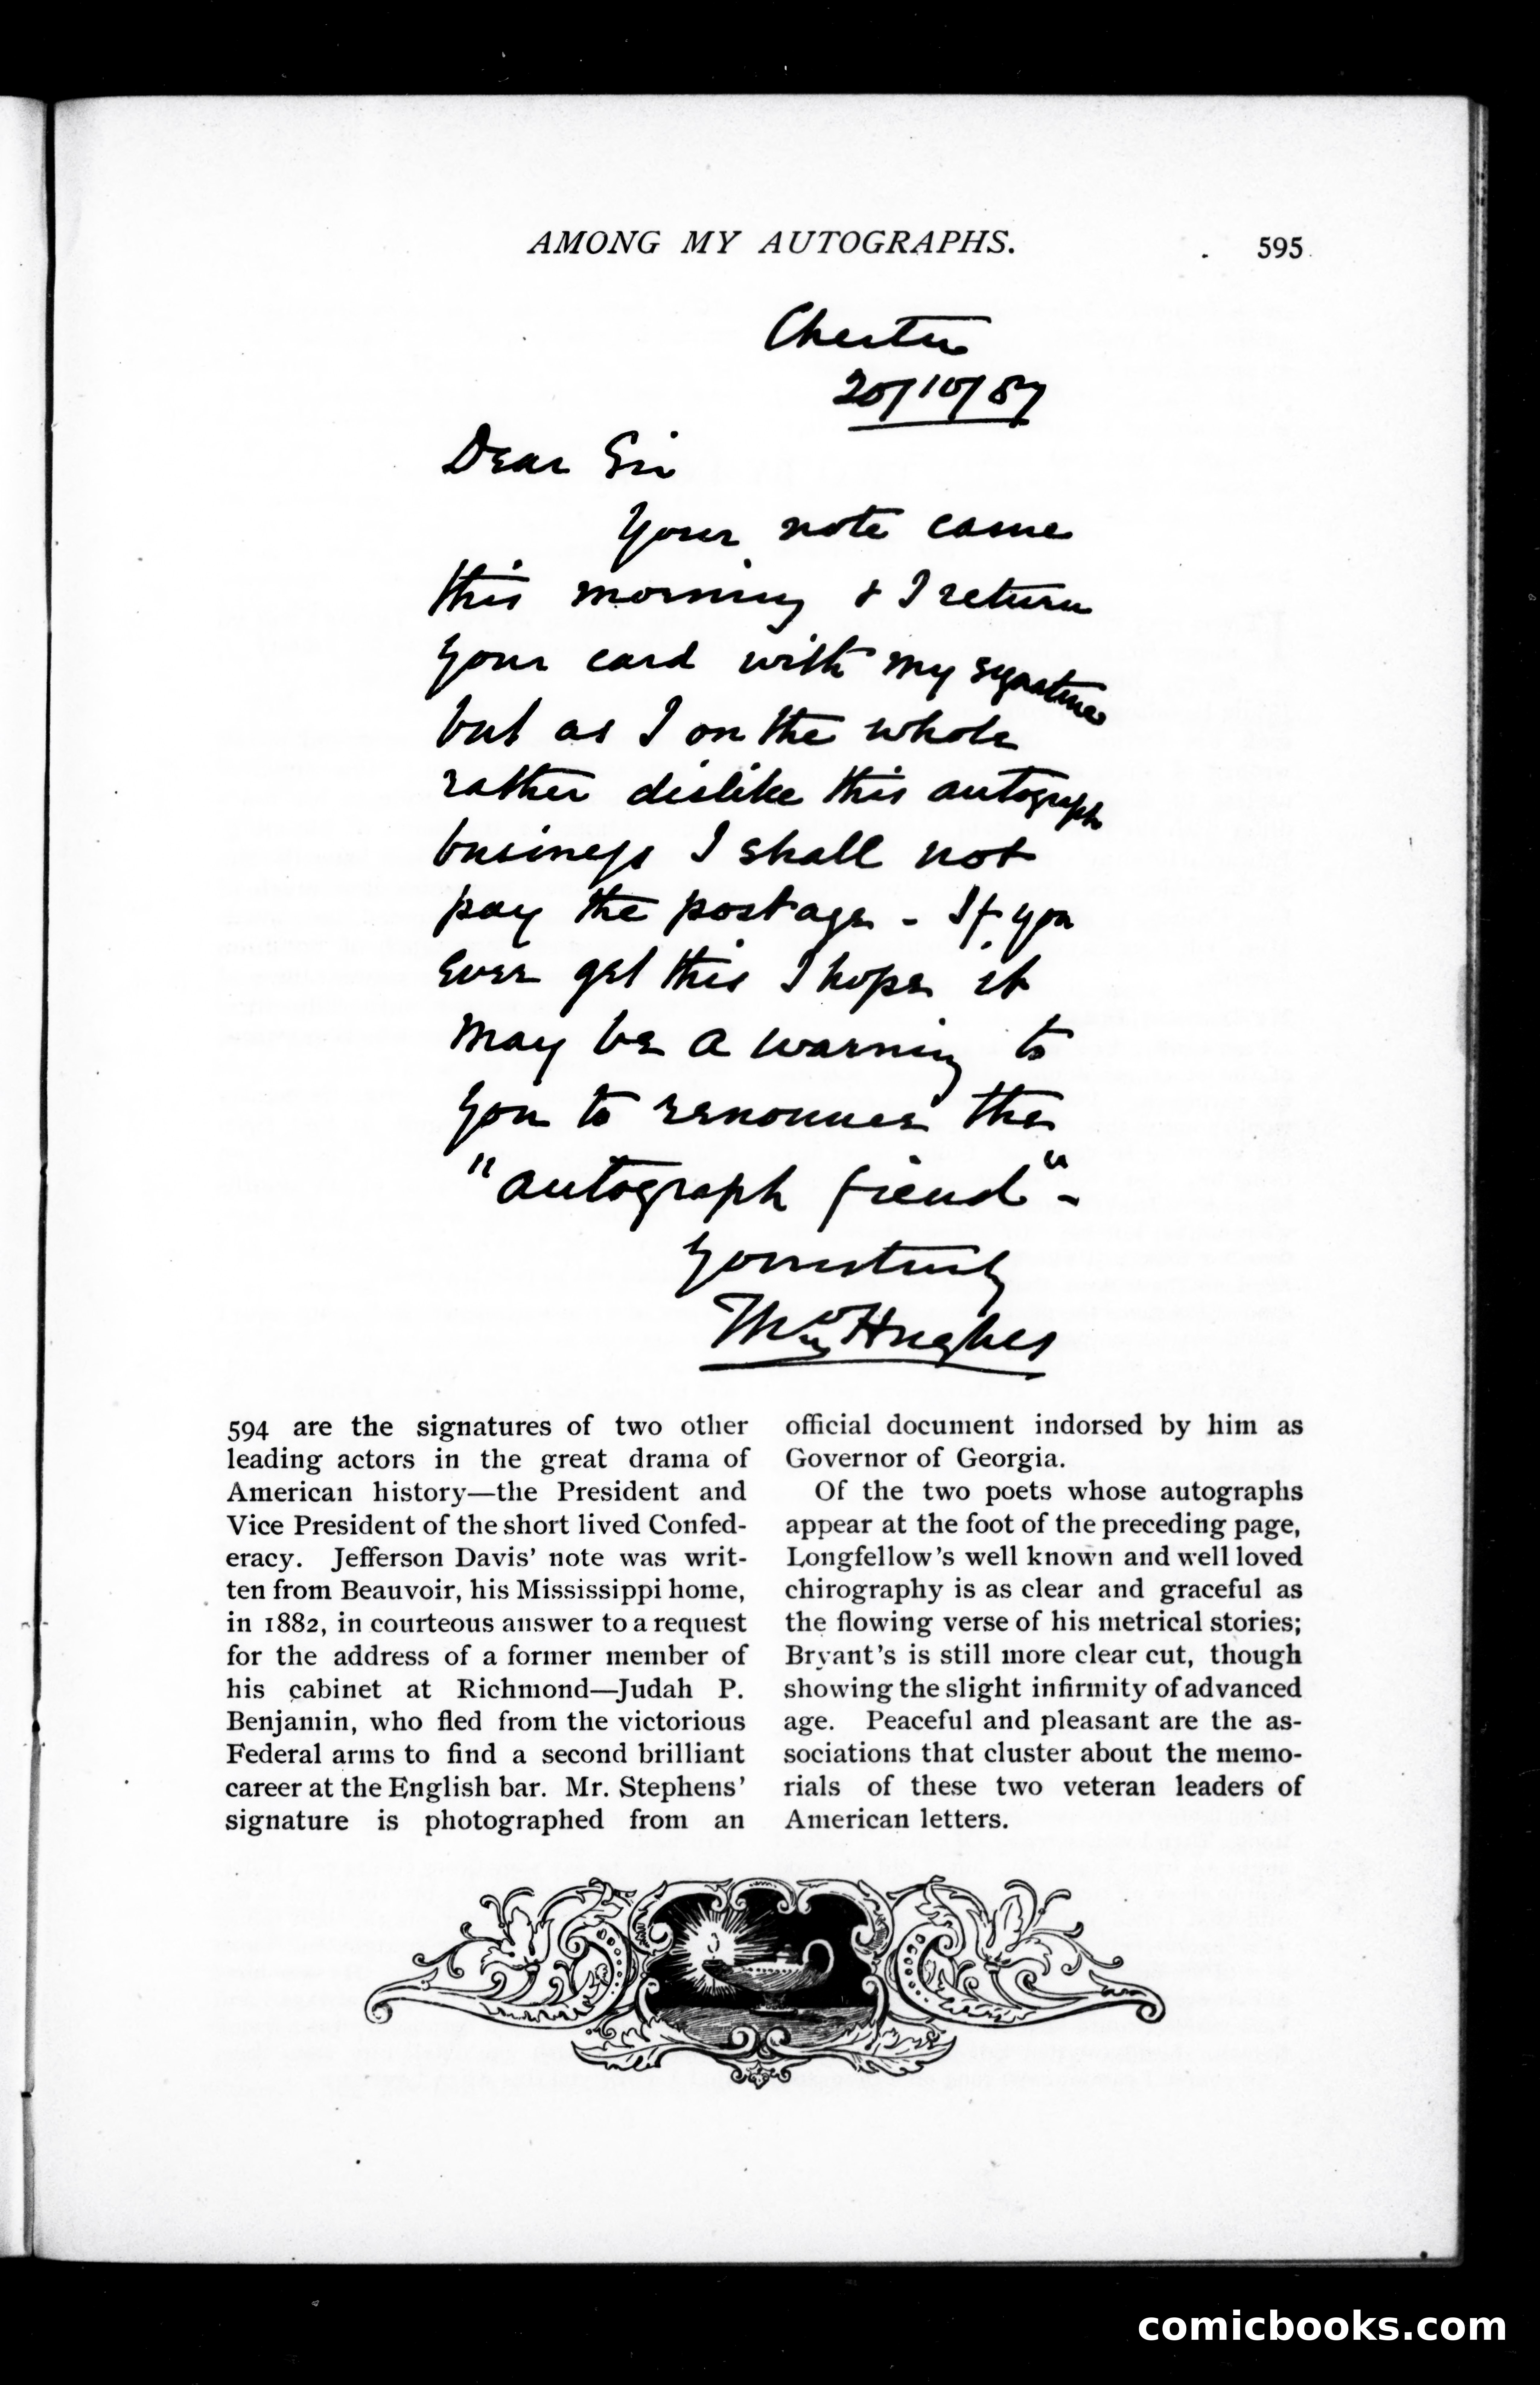 AMONG MY AUTOGRAPHS.
595
Chester
20/10/87
Dear Sir
Your note came
this morning & I return
your card with my signature
but as I on the whole
rather dislike this autograph
business I shall not
pay the postage - If you
ever get this I hope it
may be a warning to
you to renounce the
"autograph fiend" -
Yours truly
Thos Hughes
594 are the signatures of two other
leading actors in the great drama of
American history—the President and
Vice President of the short lived Confed-
eracy. Jefferson Davis' note was writ-
ten from Beauvoir, his Mississippi home,
in 1882, in courteous answer to a request
for the address of a former member of
his cabinet at Richmond—Judah P.
Benjamin, who fled from the victorious
Federal arms to find a second brilliant
career at the English bar. Mr. Stephens'
signature is photographed from an
official document indorsed by him as
Governor of Georgia.
Of the two poets whose autographs
appear at the foot of the preceding page,
Longfellow's well known and well loved
chirography is as clear and graceful as
the flowing verse of his metrical stories;
Bryant's is still more clear cut, though
showing the slight infirmity of advanced
age. Peaceful and pleasant are the as-
sociations that cluster about the memo-
rials of these two veteran leaders of
American letters.
comicbooks.com